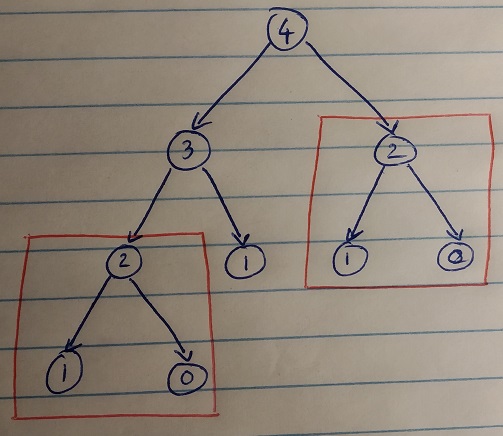 4
3 2
2 1 1 0
1 0